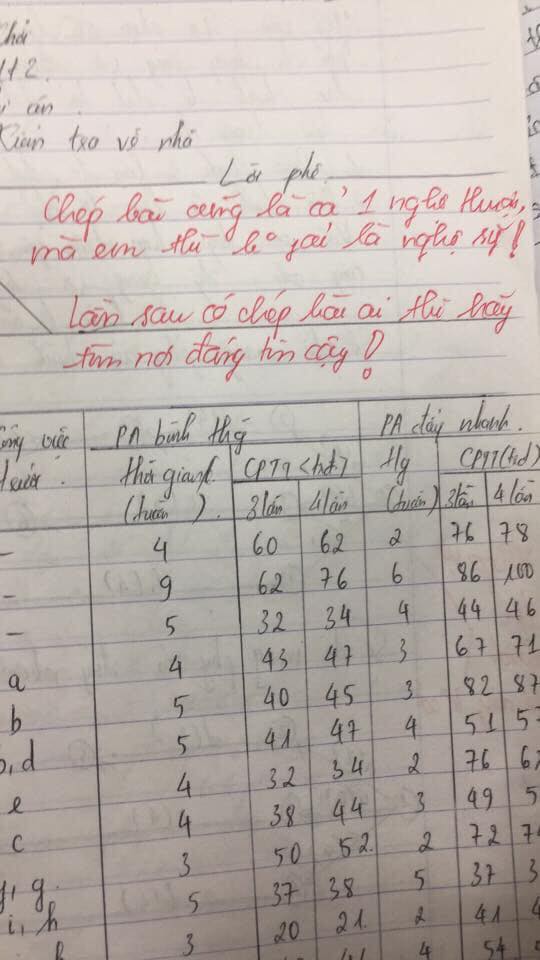 112.
án.
Kiểm tra về nhà
Lời phê.
Chép bài cũng là cả 1 nghệ thuật,
mà em thì k° phải là nghệ sỹ!
Lần sau có chép bài ai thì hãy
tìm nơi đáng tin cậy!
việc PA bình thg PA đẩy nhanh.
trước. thời gian CPTT (trđ) tg CPTT (trđ)
(tuần). 3 lần 4 lần (tuần) 3 lần 4 lần
- 4 60 62 2 76 78
- 9 62 76 6 86 100
- 5 32 34 4 44 46
a 4 43 47 3 67 71
b 5 40 45 3 82 87
b, d 5 41 47 4 51
e 4 32 34 2 76
c 4 38 44 3 49
3 50 52. 2 72
g. 5 37 38 5 37
i, h 3 20 21. 2 41
4 54